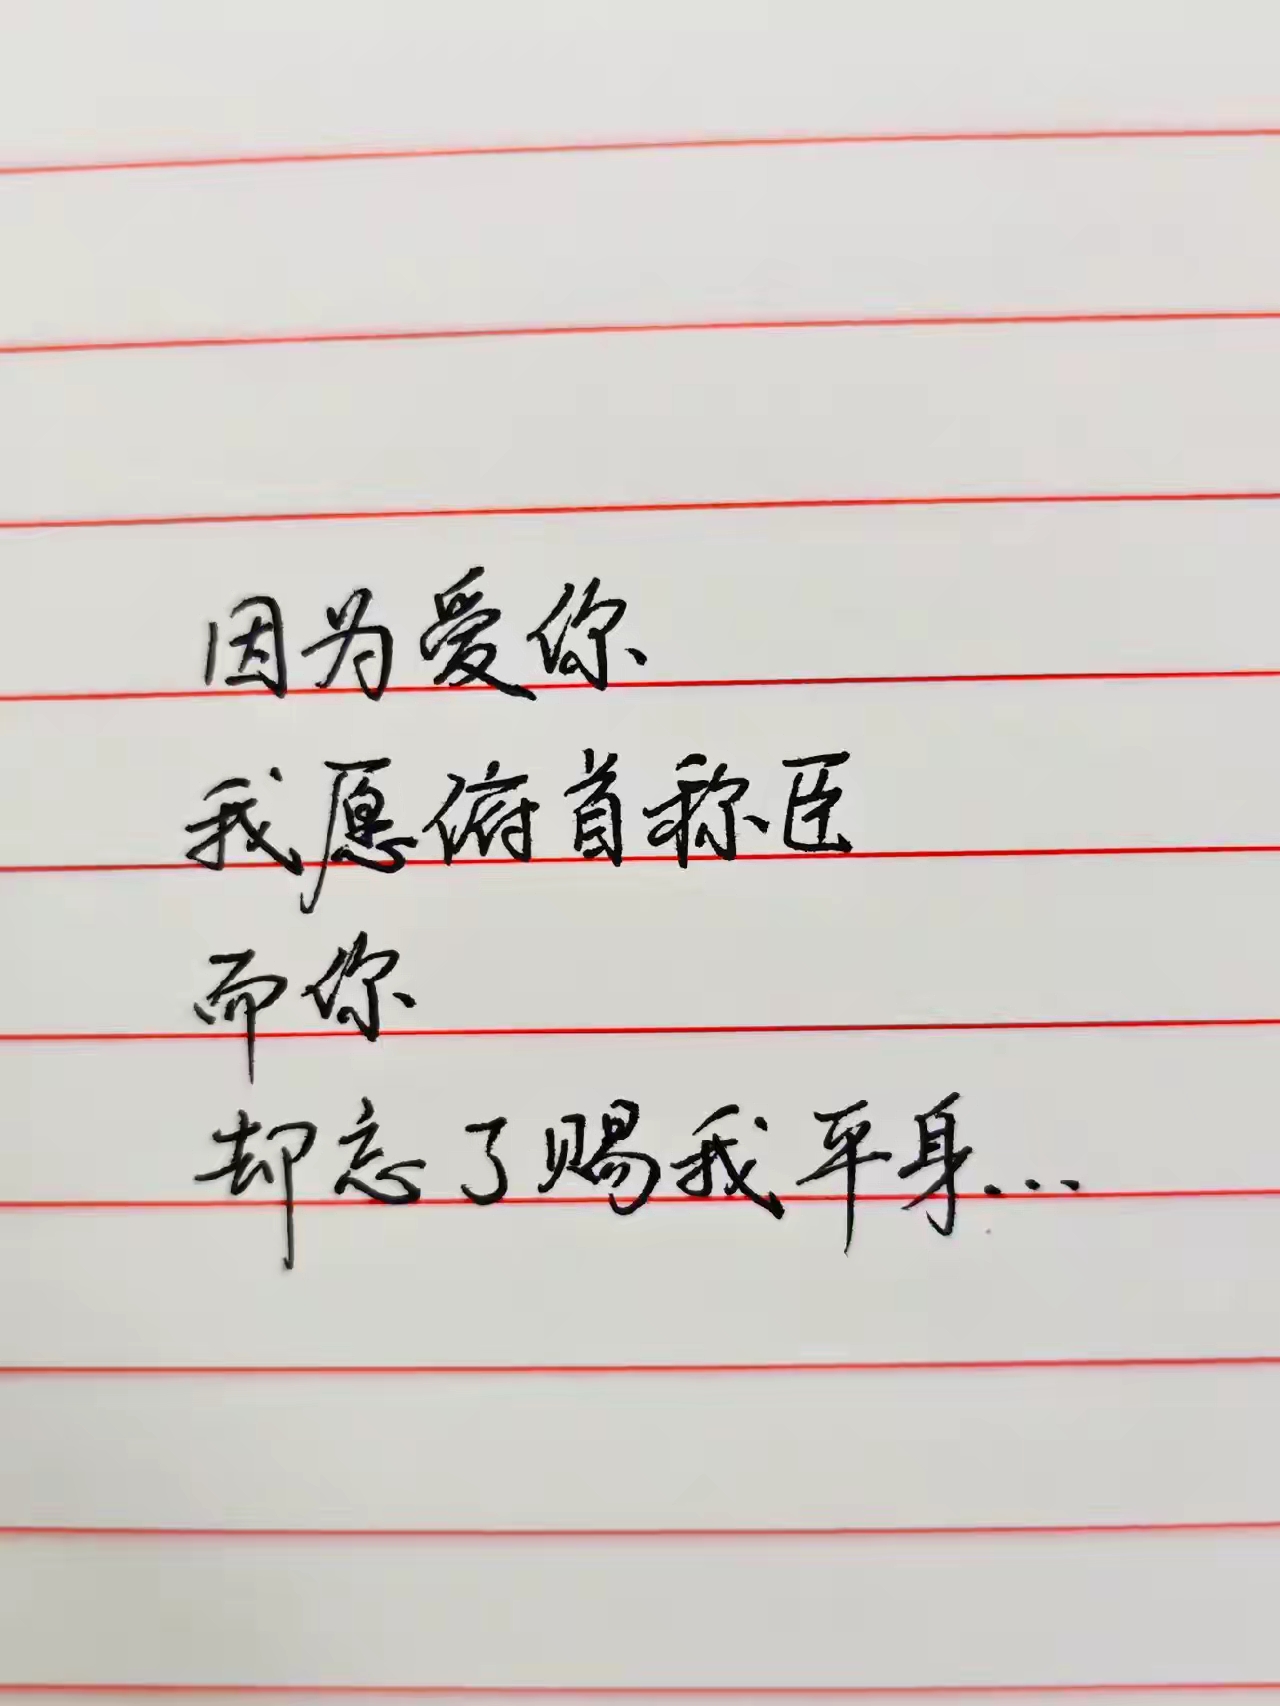 因为爱你
我愿俯首称臣
而你
却忘了赐我平身...